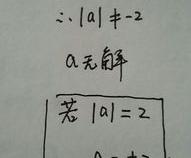 ∴|a|≠-2
a无解
若|a|=2